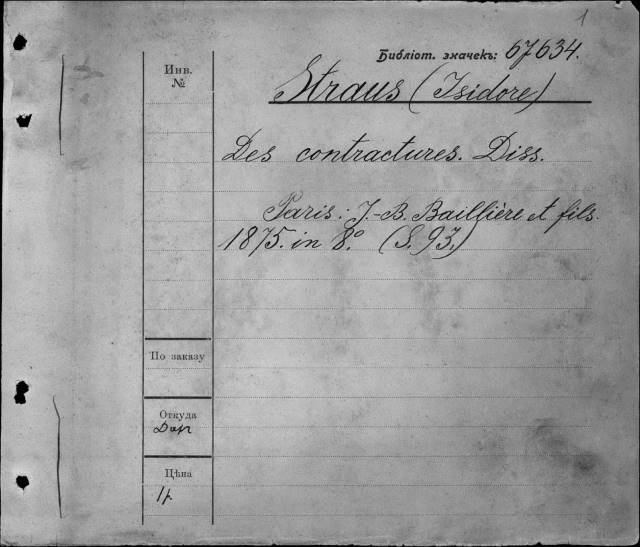 1
Библіот. значекъ: 67634.
Инв.
№
Straus (Isidore)
Des contractures. Diss.
Paris: J.-B. Baillière et fils.
1875. in 8º. (S. 93.)
По заказу
Откуда
Дар
Цѣна